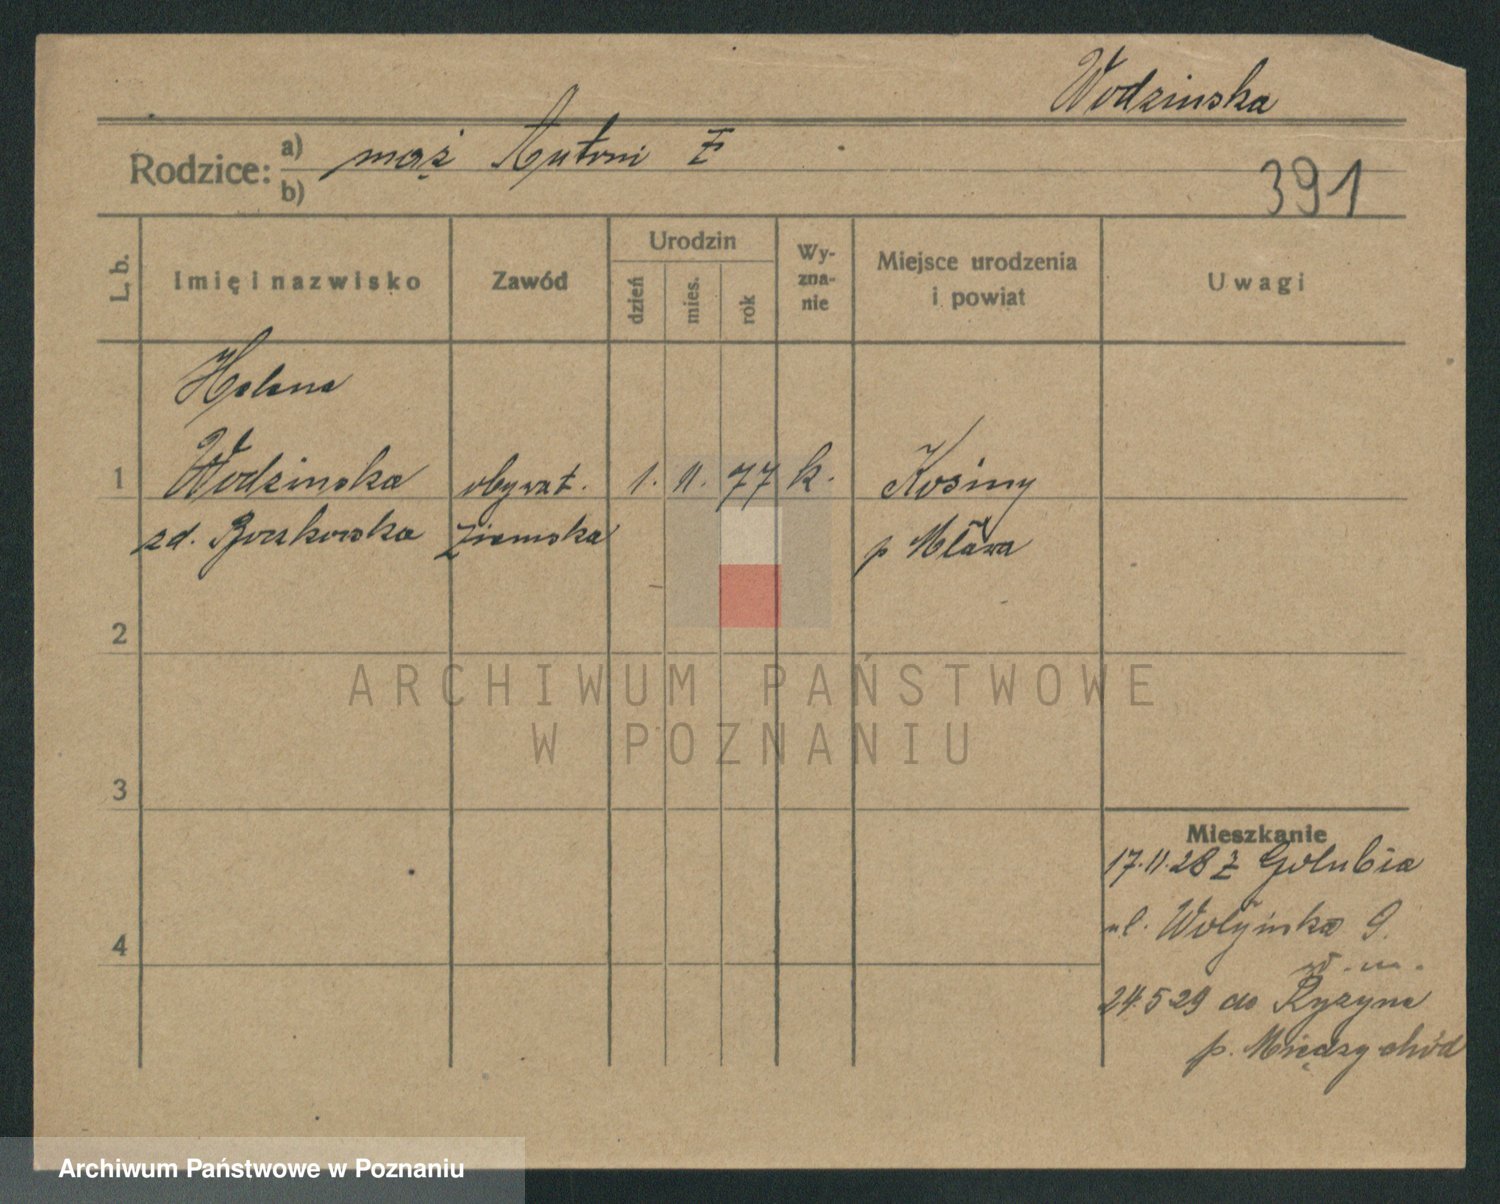 Wodzinska
Rodzice:
a) mąż Antoni Z
b)
391
L. b.
Imię i nazwisko
Zawód
Urodzin
dzień
mies.
rok
Wy-
zna-
nie
Miejsce urodzenia
i powiat
Uwagi
Helena
1 Wodzinska obywat. 1. 11. 77 k. Kosiny
zd. Ziemska p Mława
2
ARCHIWUM PAŃSTWOWE
W POZNANIU
3
Mieszkanie
17.11.28 z Golubia
ul. Wołyńska 9.
w.m.
4
24.5 29 do Ryzyna
p. Międzychód
Archiwum Państwowe w Poznaniu